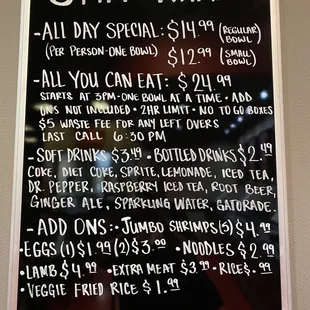 -ALL DAY SPECIAL: $14.99 (REGULAR BOWL)
(PER PERSON-ONE BOWL) $12.99 (SMALL BOWL)
-ALL YOU CAN EAT: $24.99
STARTS AT 3PM-ONE BOWL AT A TIME • ADD
ONS NOT INCLUDED • 2HR LIMIT • NO TO GO BOXES
$5 WASTE FEE FOR ANY LEFT OVERS
LAST CALL 6:30 PM
-SOFT DRINKS $3.49 • BOTTLED DRINKS $2.49
COKE, DIET COKE, SPRITE, LEMONADE, ICED TEA,
DR. PEPPER, RASPBERRY ICED TEA, ROOT BEER,
GINGER ALE, SPARKLING WATER, GATORADE.
-ADD ONS: • JUMBO SHRIMPS (5) $4.99
•EGGS (1) $1.99 (2) $3.00 • NOODLES $2.99
•LAMB $4.99 • EXTRA MEAT $3.99 • RICE $.99
•VEGGIE FRIED RICE $1.99